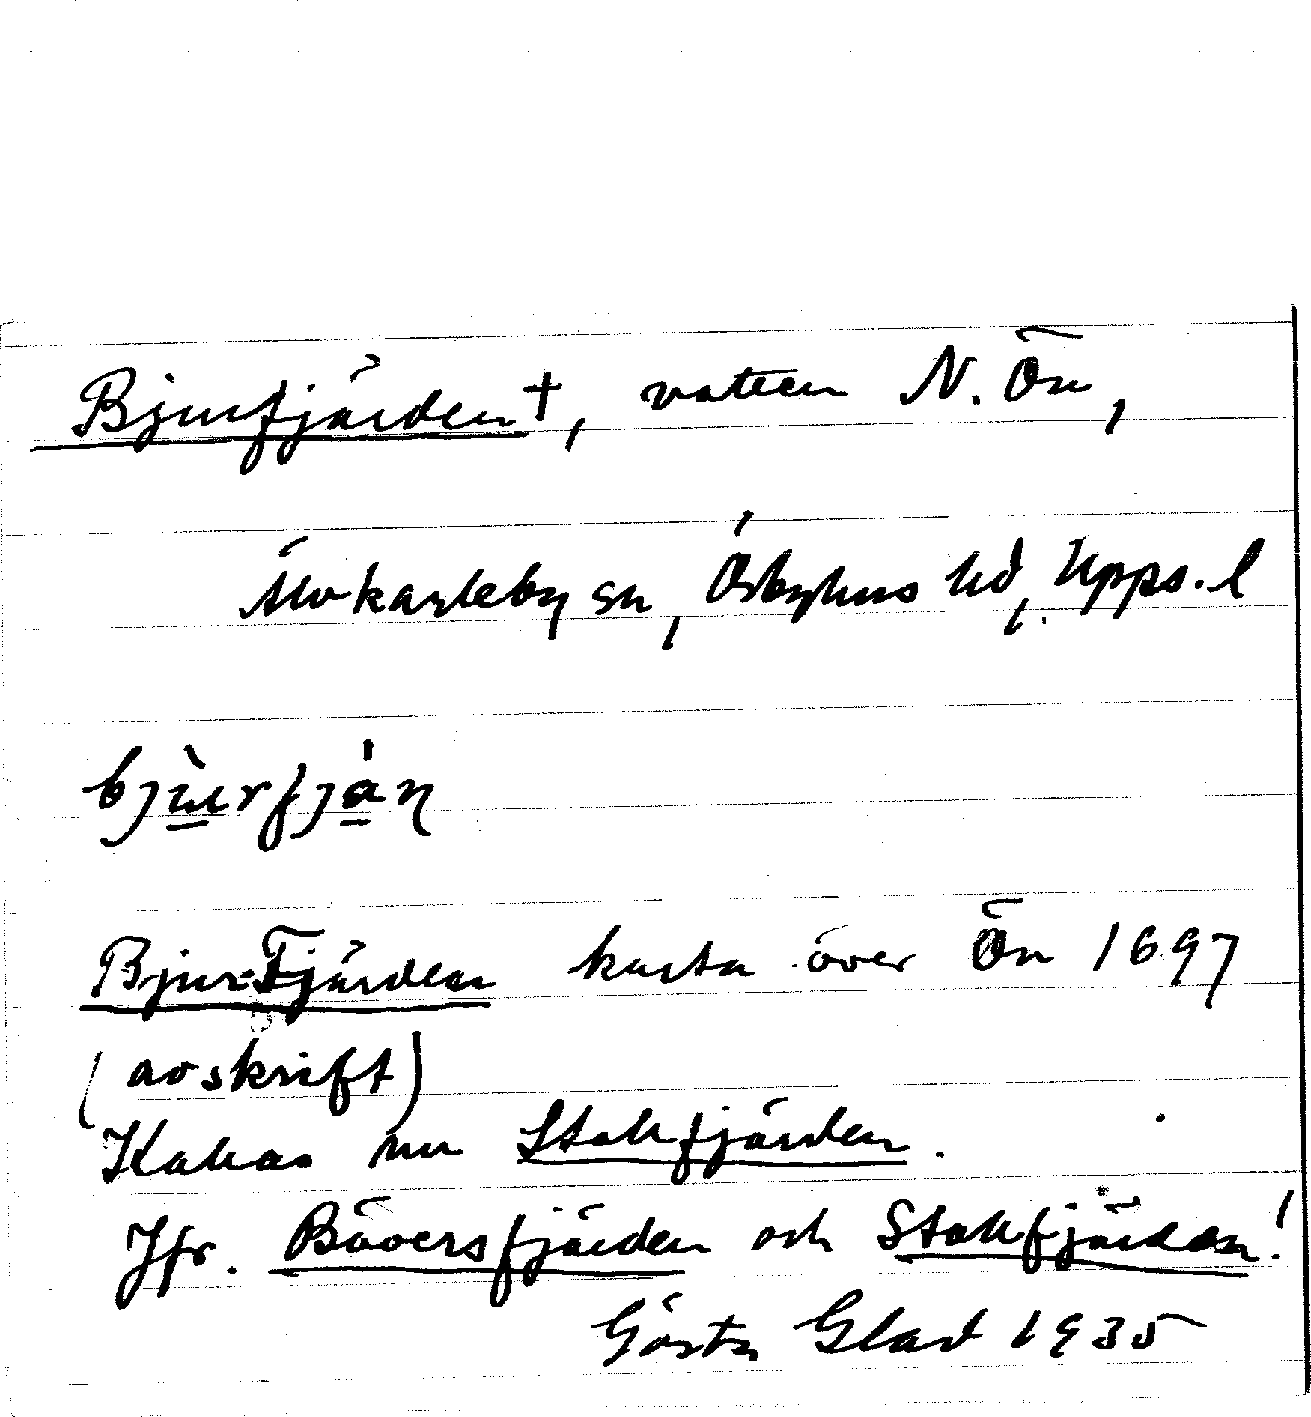 Bjurfjärden †, vatten N. Ön,
Älvkarleby sn, Örbyhus hd, Upps. l
bjùrfjáṇ
Bjur-Fjärden karta över Ön 1697
(avskrift)
Kallas nu Stakfjärden.
Jfr. Bäversfjärden och Stakfjärden!
Gösta Glad 1935